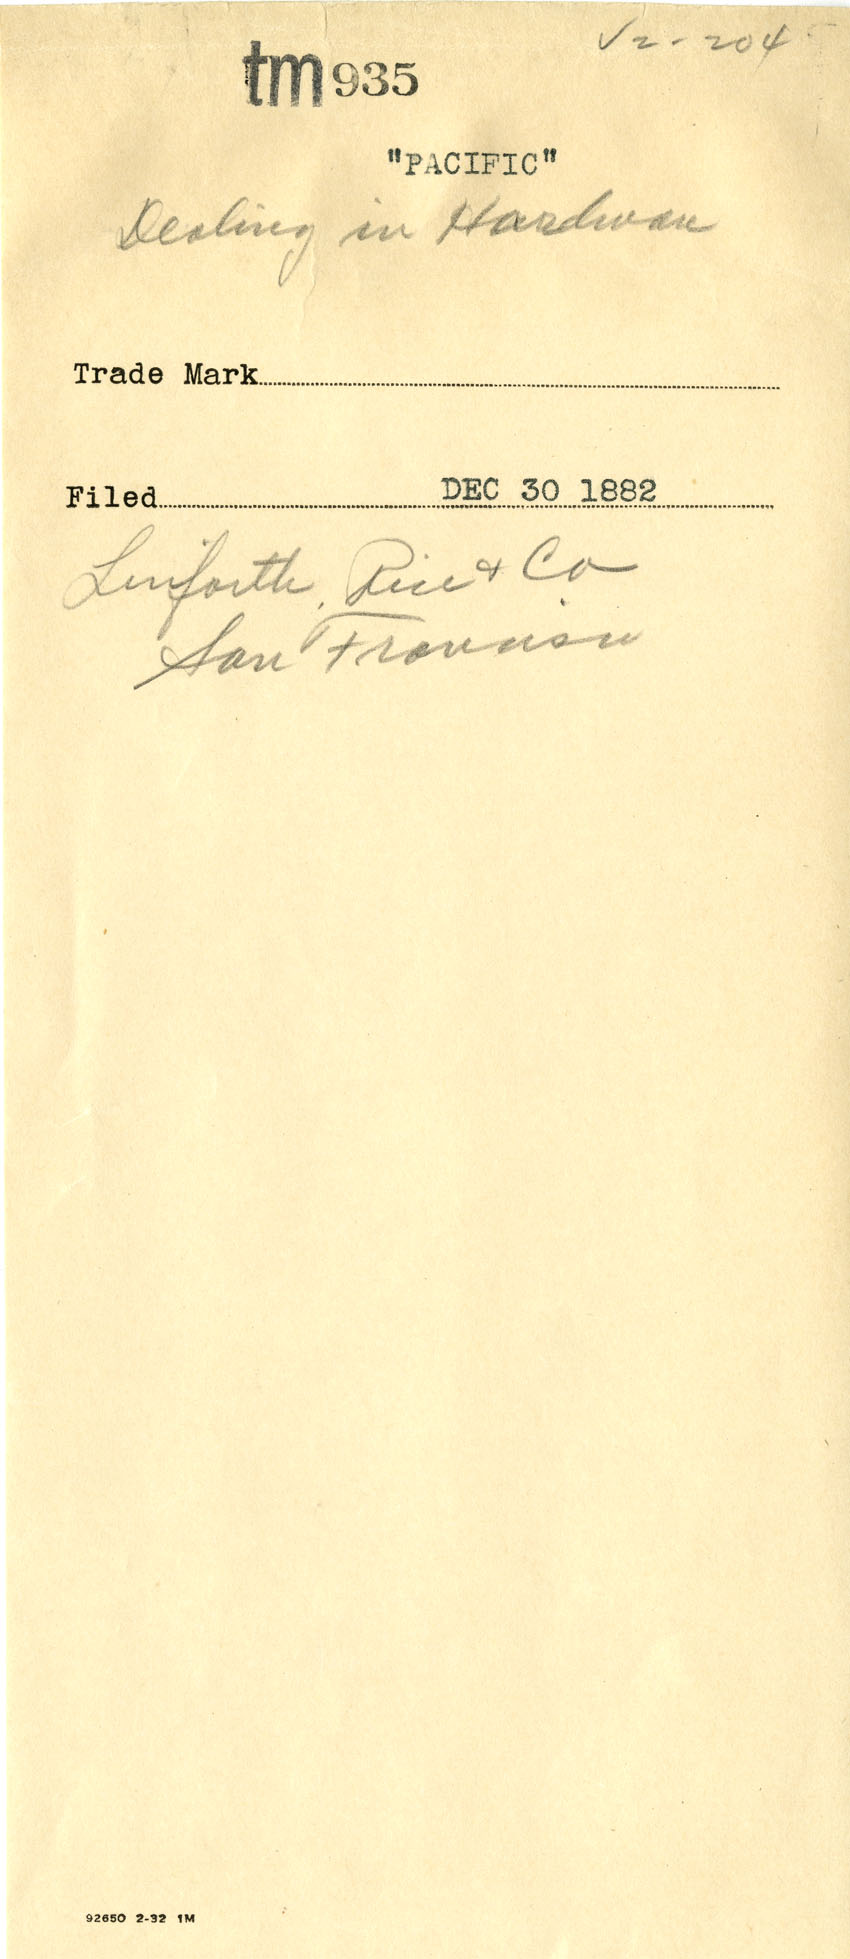 V2-204
tm 935
"PACIFIC"
Dealing in Hardware
Trade Mark
Filed DEC 30 1882
Linforth, Rice & Co
San Francisco
92650 2-32 1M